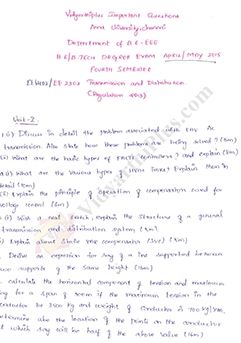 Vidyarthiplus Important Questions
Anna University, Chennai
Department of B.E-EEE
B.E/B.TECH DEGREE Exam APRIL/MAY 2015
FOURTH SEMESTER
Transmission and Distribution
(Regulation
Unit-I
1.(i) Discuss in detail the problem associated with EHV AC
transmission. Also state how these problems are being solved? (8m)
(ii) What are the basic types of FACTS controllers? and explain (8m)
What are the various types of HVDC links? Explain them in
detail (8m)
(ii) Explain the principle of operation of compensators used for
voltage control (8m)
With a neat sketch, explain the structure of a general
transmission and distribution system (8m)
Explain about static VAR compensator (SVC) (8m)
Derive an expression for sag of a line supported between
two supports of the same height (16m)
calculate the horizontal component of tension and maximum
sag for a span of 300m if the maximum tension in the
conductor be 3500 kg and weight of conductor is 700 kg/km,
determine also the location of the points on the conductor
at which sag will be half of the above value (16m)